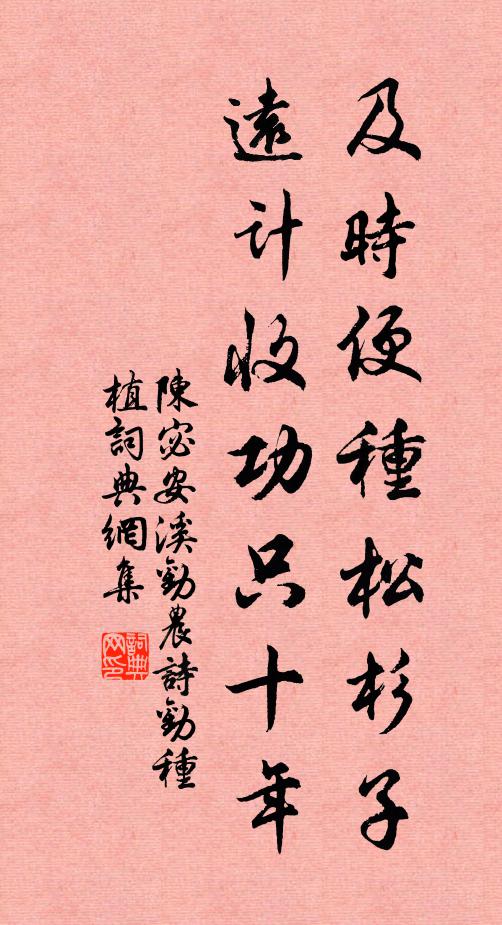 及時便種松杉子
遠計收功只十年
陳宓安溪勸農詩勸種
植詞典網集
詞典網印